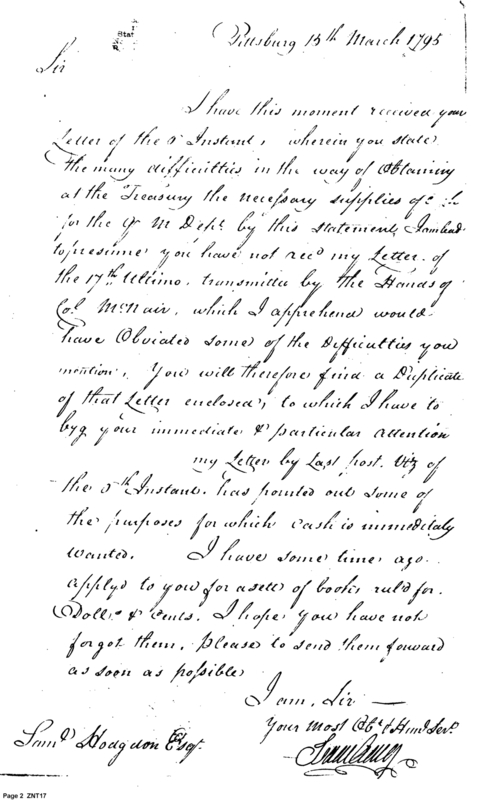 Pittsburg 13th March 1795
Sir
I have this moment received your
Letter of the 5 Instant, wherein you state
the many difficulties in the way of Obtaining
at the Treasury the necessary supplies of
for the Qr M Dept. by this statement, I am lead
to presume you have not recd my Letter of
the 17th Ultimo, transmitted by the Hands of
Col. McNair, which I apprehend would
have Obviated some of the Difficulties you
mention, You will therefore find a Duplicate
of that Letter enclosed, to which I have to
byg your immediate & particular attention
my Letter by Last post. Viz of
the 5th Instant, has pointed out some of
the purposes for which cash is immediately
wanted. I have some time ago
apply'd to you for a sett of books rul'd for
Dolls & Cents. I hope you have not
forgot them, please to send them forward
as soon as possible
I am, Sir —
Your Most Obt & Huml Servt
Saml Hodgdon Esqr.
Page 2 ZNT17